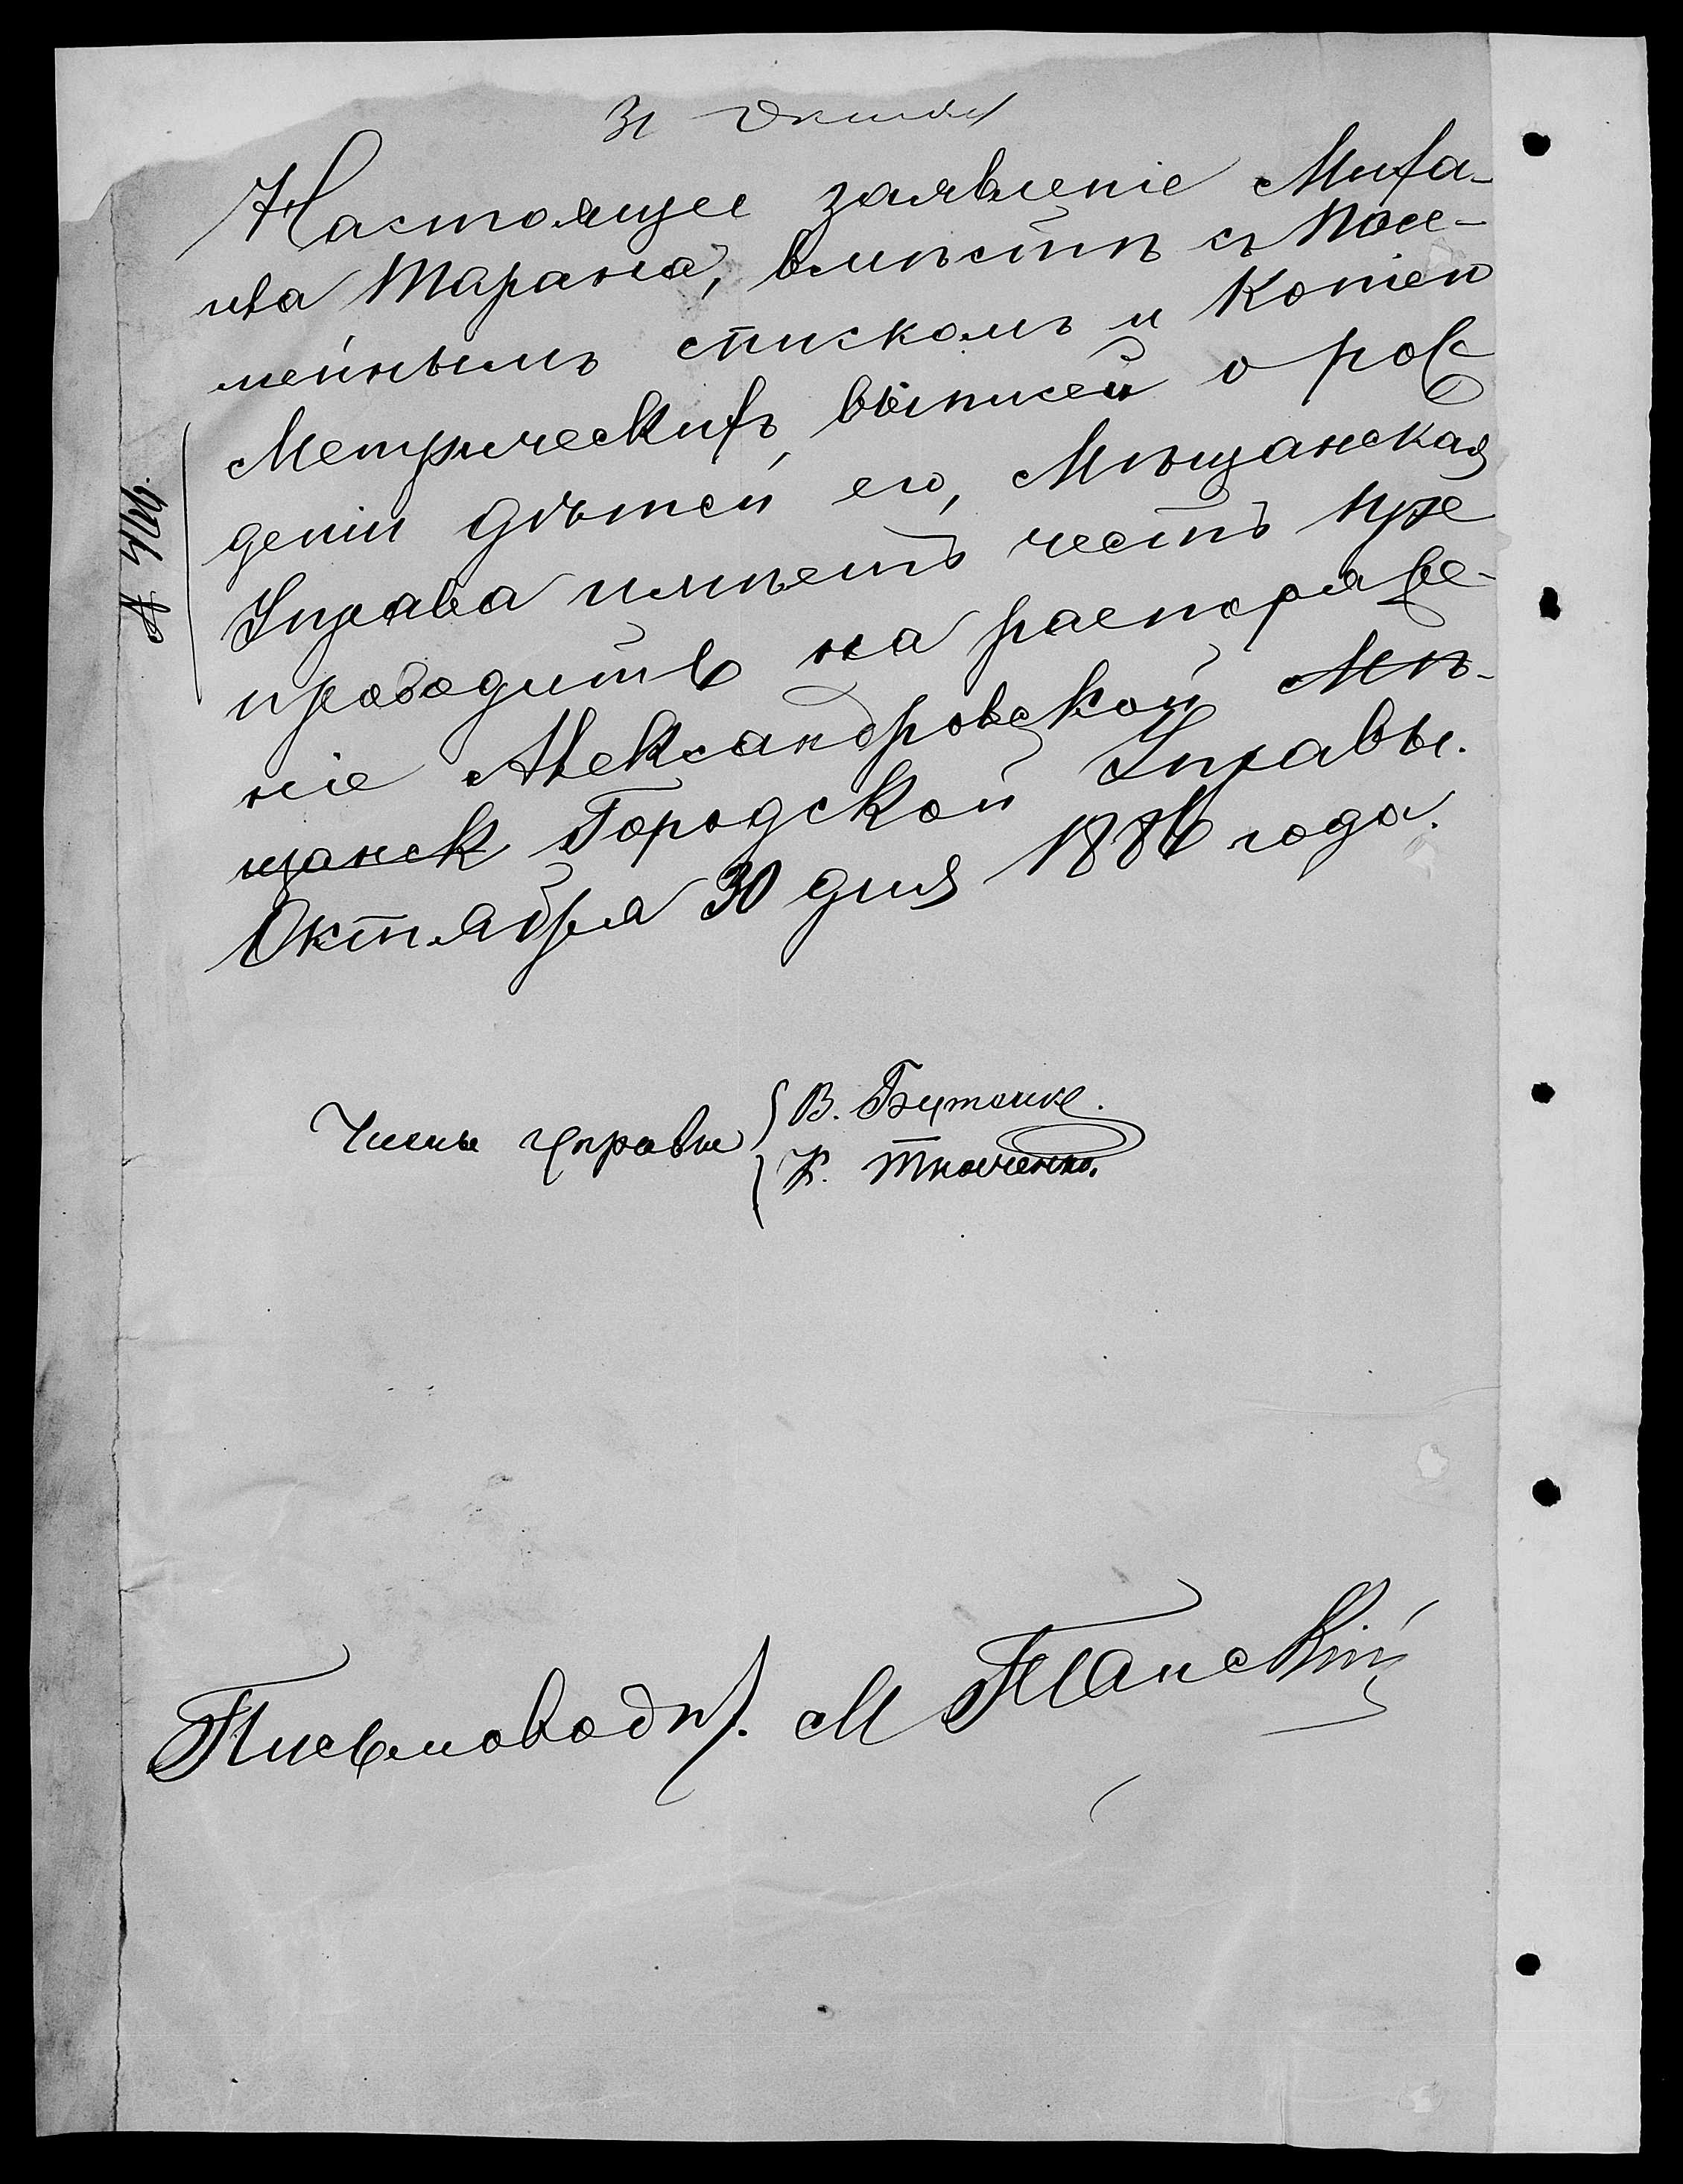 31 Октяб
Настоящее заявленіе Миха-
ила Тарана, вмѣстѣ съ Посе-
мейнымъ спискомъ и Копіею
Метрическихъ выписей о рож
деніи дѣтей его, Мѣщанская
Управа имѣетъ честь пре
проводить на распоряже-
ніе Александровской Мѣ-
щанск Городской Управы.
Октября 30 дня 1886 года.
Члены управы
В. Бутенке.
К. Ткаченко.
Письмоводт. М Планскій